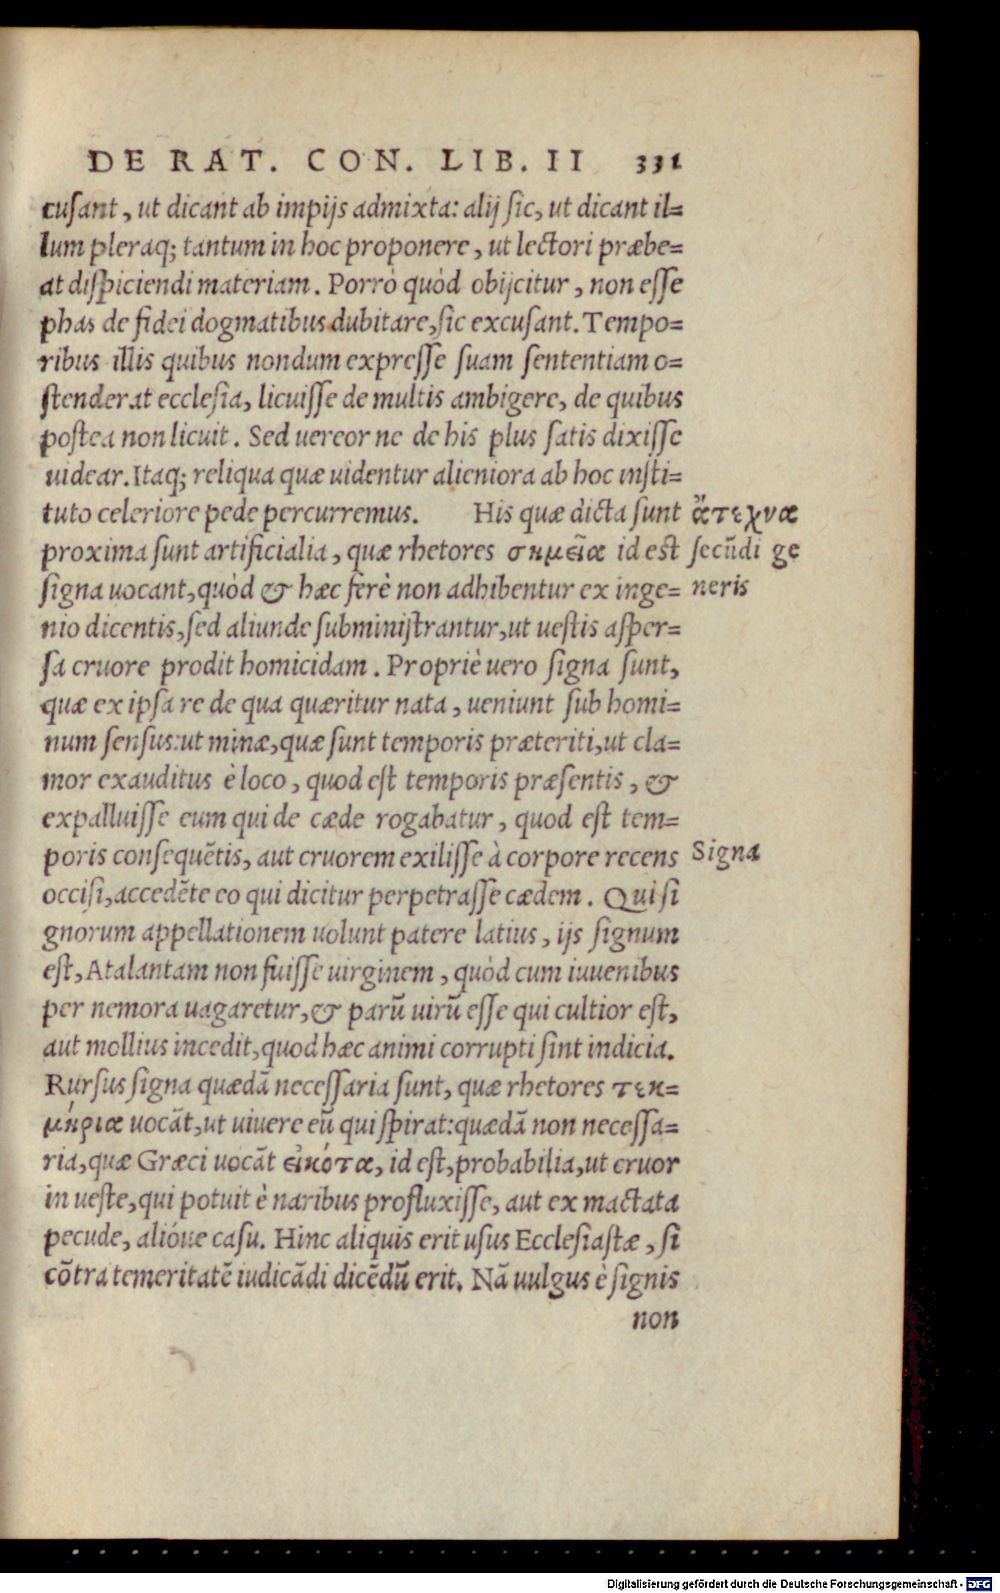 DE RAT. CON. LIB. II 331
cusant, ut dicant ab impijs admixta: alij sic, ut dicant il=
lum pleraq; tantum in hoc proponere, ut lectori præbe=
at dispiciendi materiam. Porrò quòd obijcitur, non esse
phas de fidei dogmatibus dubitare, sic excusant. Tempo=
ribus illis quibus nondum expresse suam sententiam o=
stenderat ecclesia, licuisse de multis ambigere, de quibus
postea non licuit. Sed uereor ne de his plus satis dixisse
uidear. Itaq; reliqua quæ uidentur alieniora ab hoc insti=
tuto celeriore pede percurremus. His quæ dicta sunt
proxima sunt artificialia, quæ rhetores σημεῖα id est
signa uocant, quòd & hæc ferè non adhibentur ex inge=
nio dicentis, sed aliunde subministrantur, ut uestis asper=
sa cruore prodit homicidam. Propriè uero signa sunt,
quæ ex ipsa re de qua quæritur nata, ueniunt sub homi=
num sensus: ut minæ, quæ sunt temporis præteriti, ut cla=
mor exauditus è loco, quod est temporis præsentis, &
expalluisse eum qui de cæde rogabatur, quod est tem=
poris consequẽtis, aut cruorem exilisse à corpore recens
occisi, accedẽte eo qui dicitur perpetrasse cædem. Qui si
gnorum appellationem uolunt patere latius, ijs signum
est, Atalantam non fuisse uirginem, quòd cum iuuenibus
per nemora uagaretur, & parũ uirũ esse qui cultior est,
aut mollius incedit, quod hæc animi corrupti sint indicia.
Rursus signa quædã necessaria sunt, quæ rhetores τεκ=
μήρια uocãt, ut uiuere eũ qui spirat: quædã non necessa=
ria, quæ Græci uocãt εἰκότα, id est, probabilia, ut cruor
in ueste, qui potuit è naribus profluxisse, aut ex mactata
pecude, alióue casu. Hinc aliquis erit usus Ecclesiastæ, si
cõtra temeritatẽ iudicãdi dicẽdũ erit. Nã uulgus è signis
non
ἄτεχνα
secũdi ge
neris
Signa
Digitalisierung gefördert durch die Deutsche Forschungsgemeinschaft - DFG